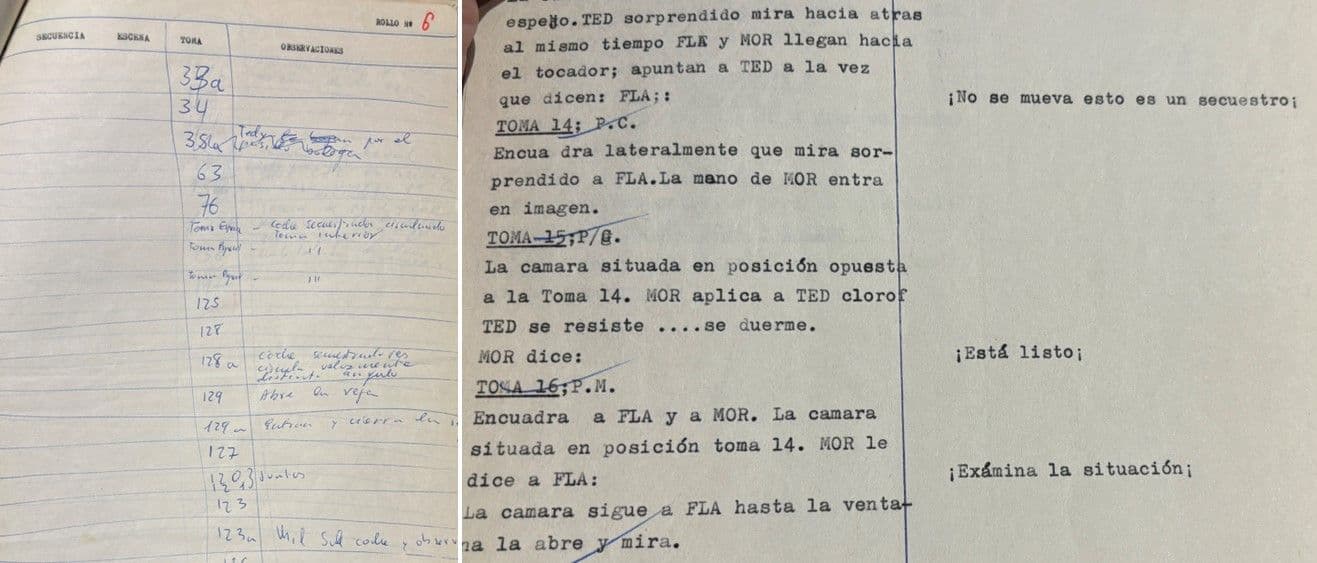 ROLLO Nº 6
SECUENCIA ESCENA TOMA OBSERVACIONES
33a
34
35a Tedy por el
63
76
Toma - coche circulando
Toma interior
Toma - "
Toma - "
125
128
128a coche secuestradores
circula velozmente
distinto angulo
129 Abre la reja
129a Entran y cierra la
127
juntos
123
123a sale coche y observa
espejo.TED sorprendido mira hacia atras
al mismo tiempo FLA y MOR llegan hacia
el tocador; apuntan a TED a la vez
que dicen: FLA;: ¡No se mueva esto es un secuestro¡
TOMA 14; P.C.
Encua dra lateralmente que mira sor-
prendido a FLA.La mano de MOR entra
en imagen.
TOMA 15;P/G.
La camara situada en posición opuesta
a la Toma 14. MOR aplica a TED clorof
TED se resiste ....se duerme.
MOR dice: ¡Está listo¡
TOMA 16;P.M.
Encuadra a FLA y a MOR. La camara
situada en posición toma 14. MOR le
dice a FLA: ¡Exámina la situación¡
La camara sigue a FLA hasta la venta-
na la abre y mira.